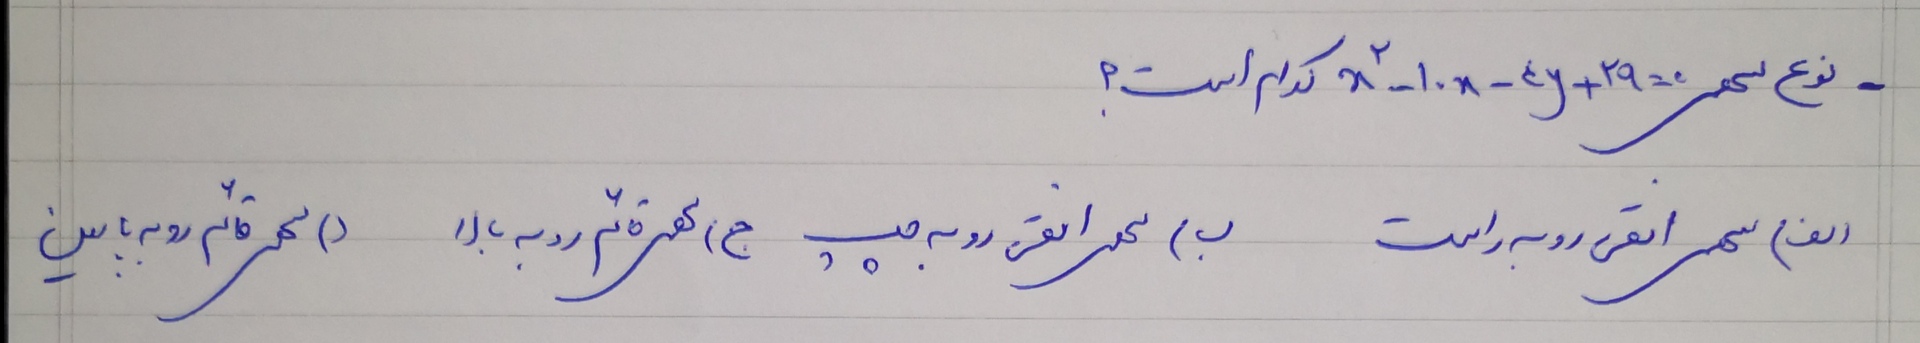 - نوع سهمی x²-۱۰x-۴y+۲۹=۰ کدام است؟
الف) سهمی افقی رو به راست ب) سهمی افقی رو به چپ ج) سهمی قائم رو به بالا د) سهمی قائم رو به پایین